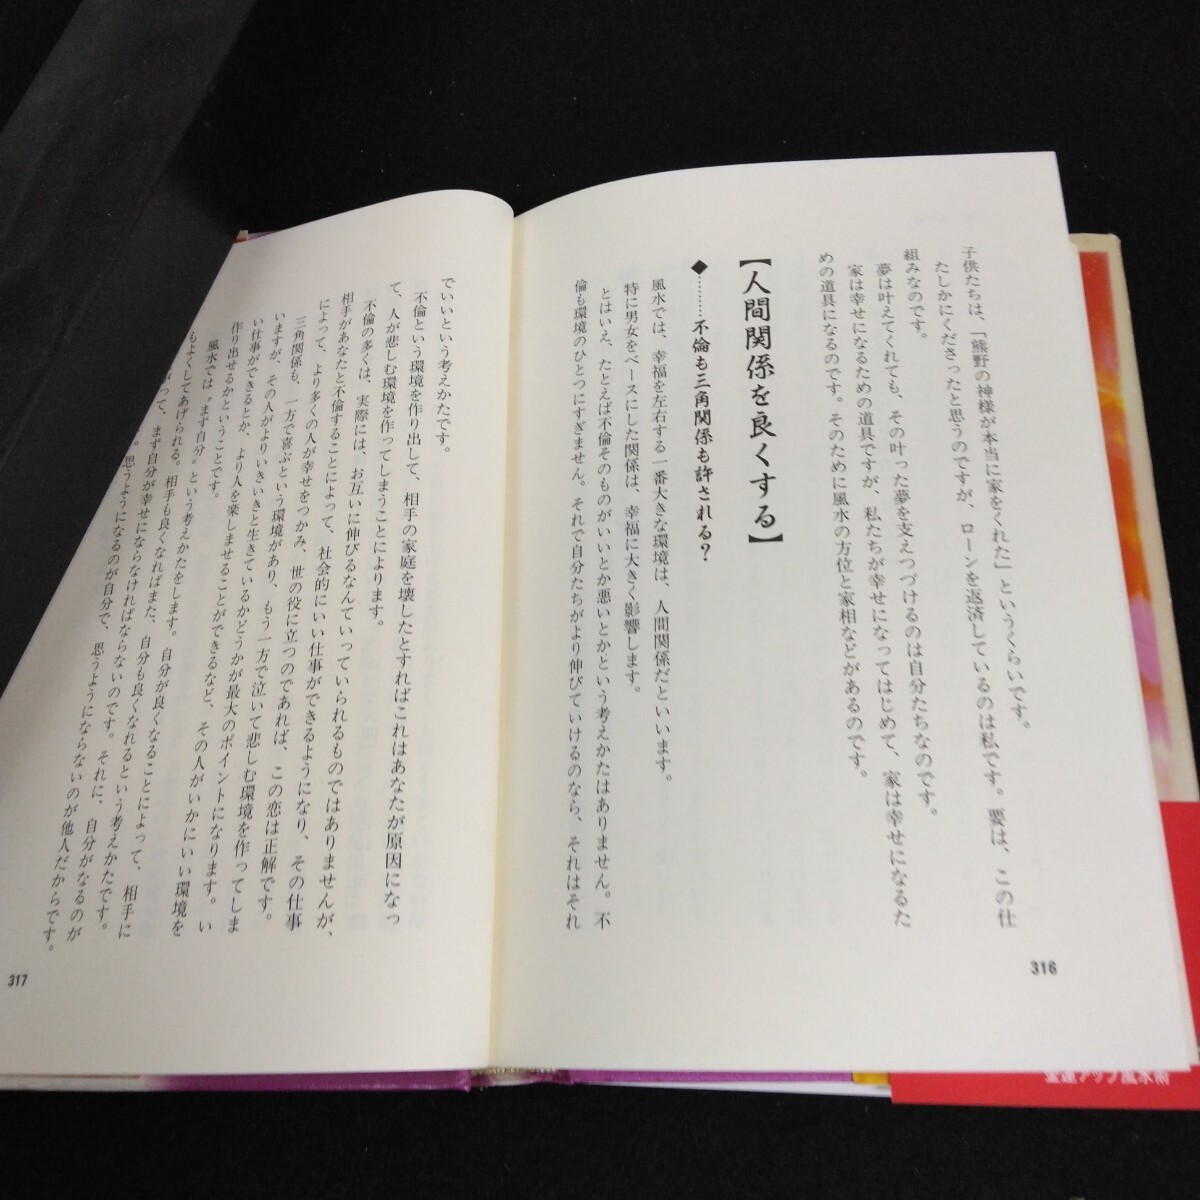 子供たちは、「熊野の神様が本当に家をくれた」というくらいです。
たしかにくださったと思うのですが、ローンを返済しているのは私です。要は、この仕
組みなのです。
夢は叶えてくれても、その叶った夢を支えつづけるのは自分たちなのです。
家は幸せになるための道具ですが、私たちが幸せになってはじめて、家は幸せになるた
めの道具になるのです。そのために風水の方位と家相などがあるのです。
【人間関係を良くする】
◆………不倫も三角関係も許される？
風水では、幸福を左右する一番大きな環境は、人間関係だといいます。
特に男女をベースにした関係は、幸福に大きく影響します。
とはいえ、たとえば不倫そのものがいいとか悪いとかという考えかたはありません。不
倫も環境のひとつにすぎません。それで自分たちがより伸びていけるのなら、それはそれ
316
でいいという考えかたです。
不倫という環境を作り出して、相手の家庭を壊したとすればこれはあなたが原因になっ
て、人が悲しむ環境を作ってしまうことによります。
不倫の多くは、実際には、お互いに伸びるなんていっていられるものではありませんが、
相手があなたと不倫することによって、社会的にいい仕事ができるようになり、その仕事
によって、より多くの人が幸せをつかみ、世の役に立つのであれば、この恋は正解です。
三角関係も、一方で喜ぶという環境があり、もう一方で泣いて悲しむ環境を作ってしま
いますが、その人がよりいきいきと生きているかどうかが最大のポイントになります。い
い仕事ができるとか、より人を楽しませることができるなど、その人がいかにいい環境を
作り出せるかということです。
風水では〝まず自分〟という考えかたをします。自分が良くなることによって、相手に
もよくしてあげられる。相手も良くなればまた、自分も良くなれるという考えかたです。
って、まず自分が幸せにならなければならないのです。それに、自分がなるのが
。思うようになるのが自分で、思うようにならないのが他人だからです。
317
金運アップ風水術